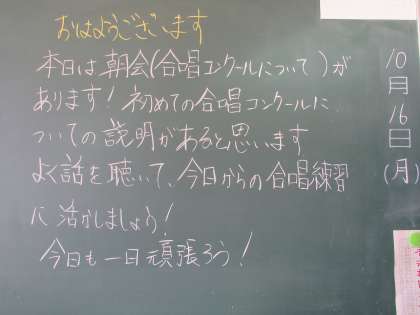 おはようございます
本日は朝会(合唱コンクールについて)が
あります！初めての合唱コンクールに
ついての説明があると思います
よく話を聴いて、今日からの合唱練習
に活かしましょう！
今日も一日頑張ろう！
10月16日(月)